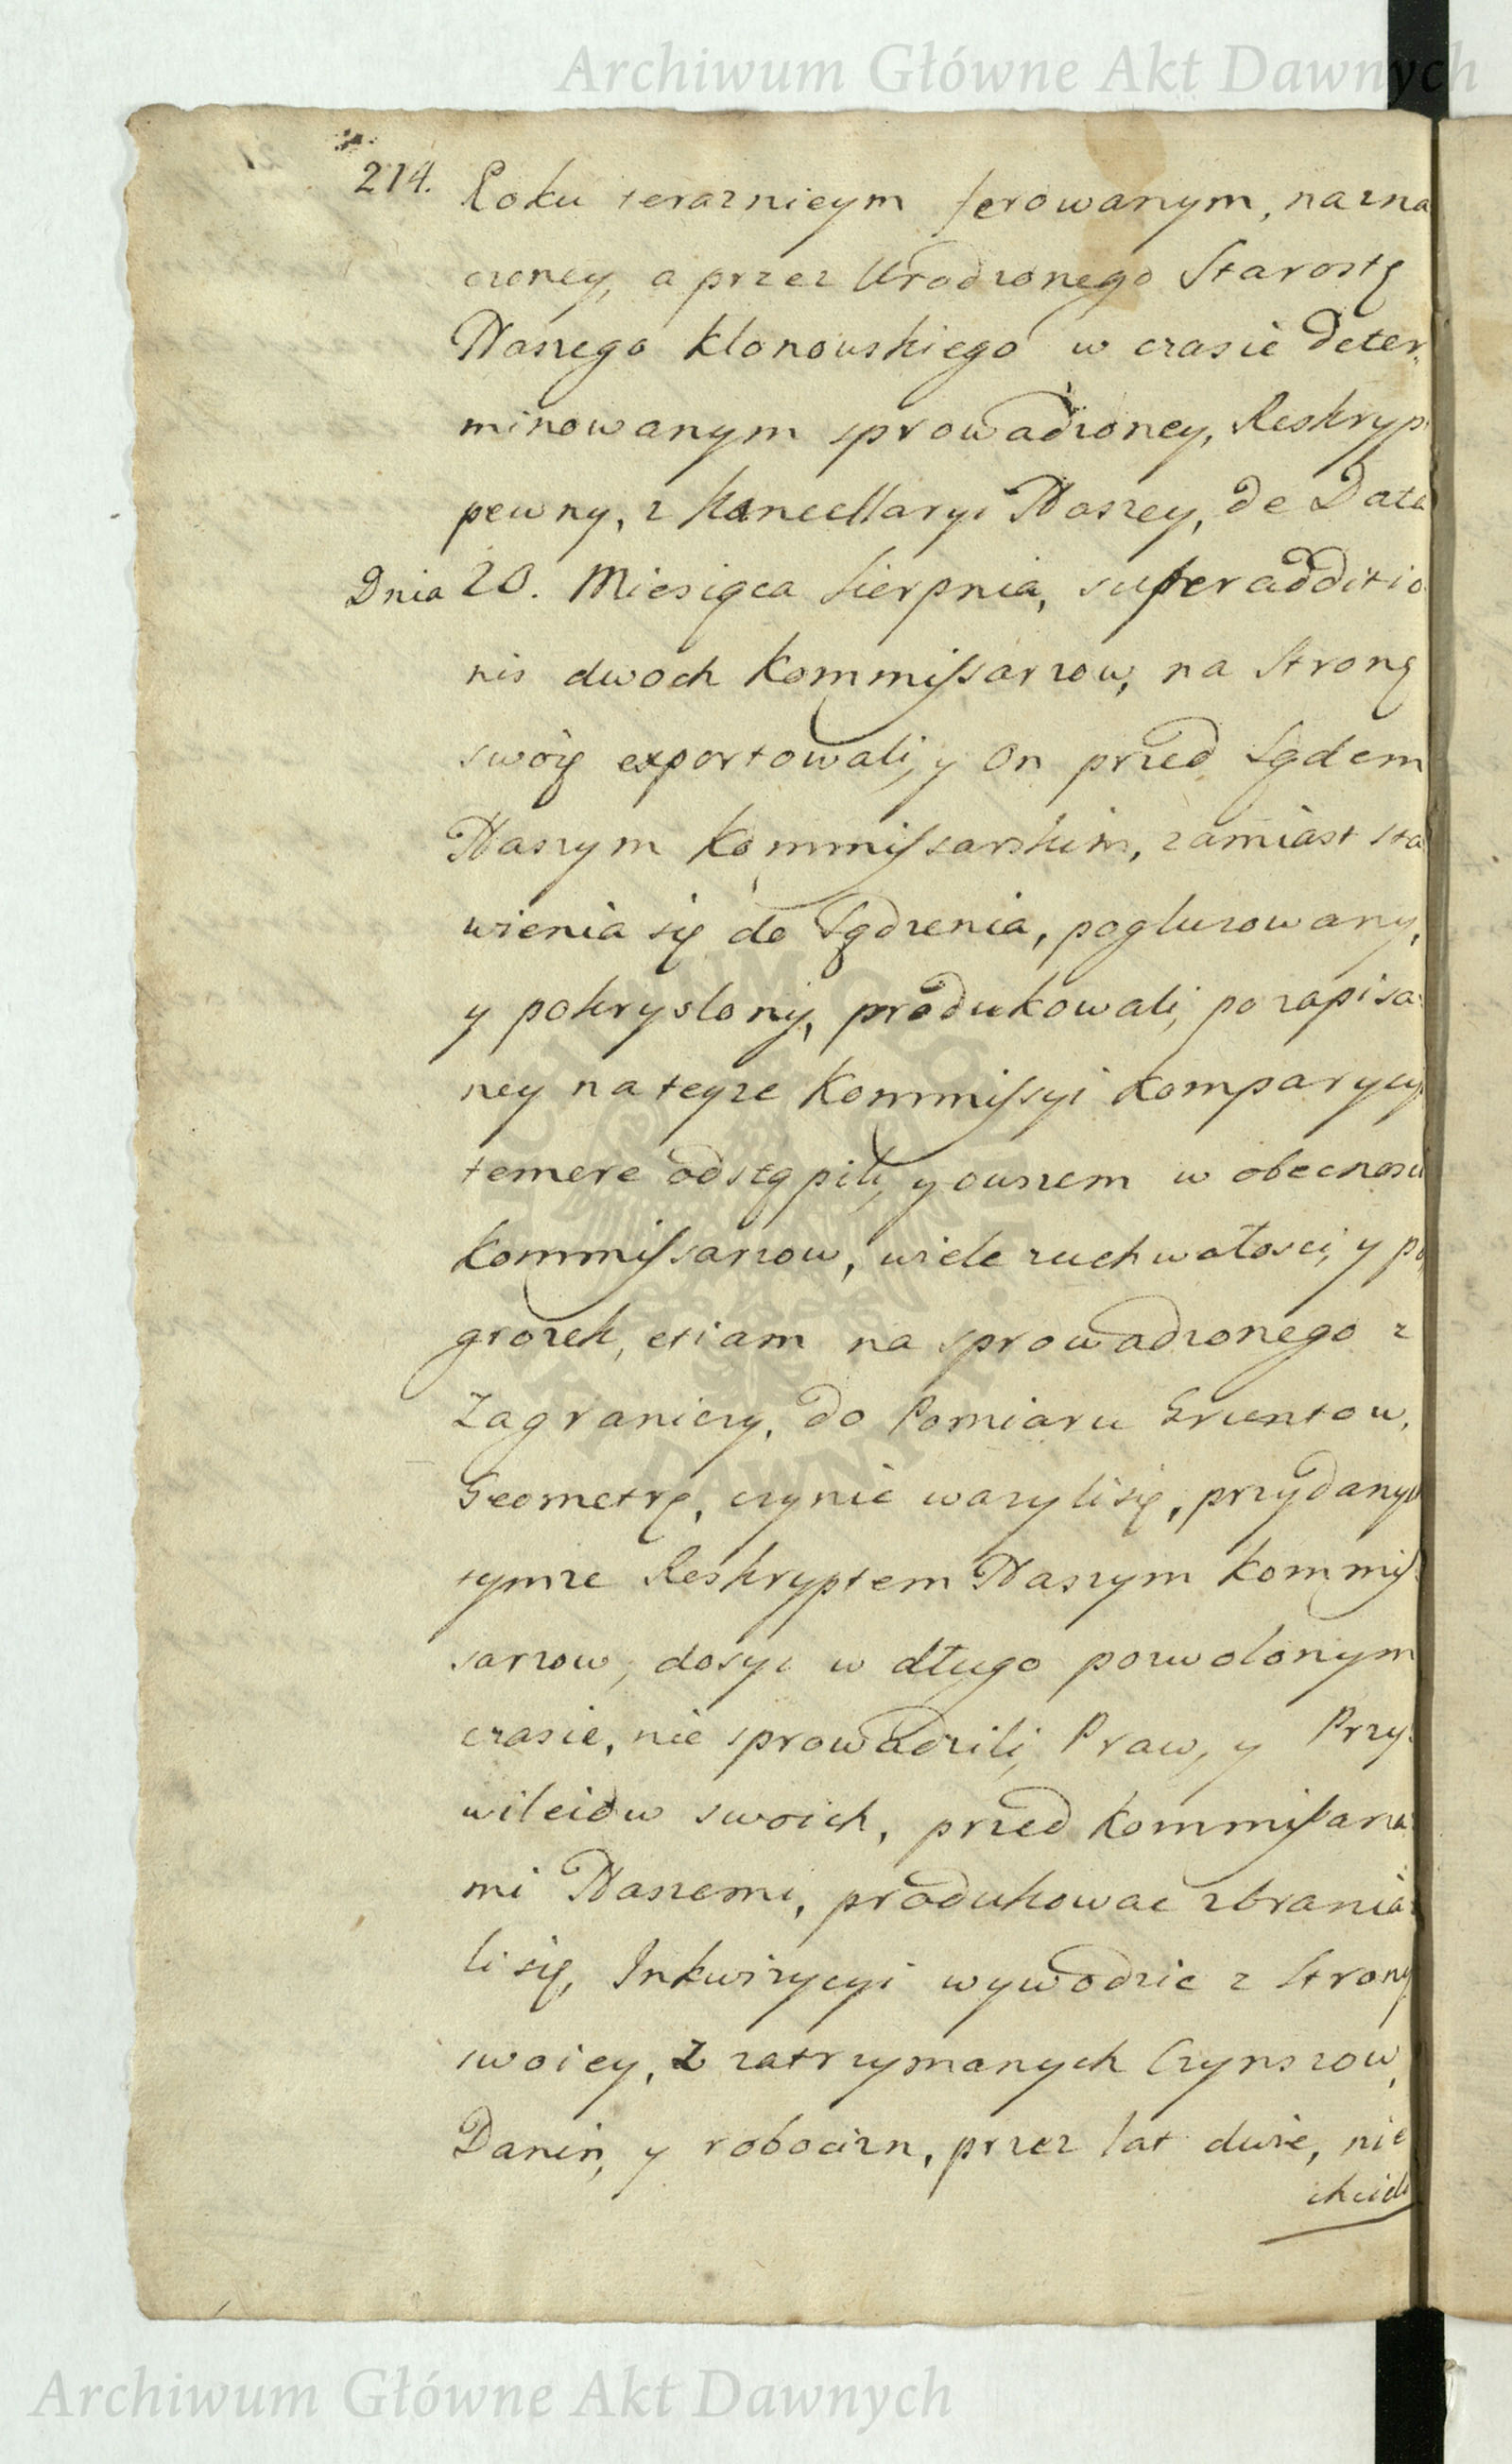 Archiwum Główne Akt Dawnych
214.
Roku teraznieym ferowanym, nazna
czoney, a przez Urodzonego Starostę
Naszego Klonowskiego w czasie deter,
minowanym sprowadzoney, Reskryp
pewny, z Kancellaryi Naszey, de Data
Dnia 20. Miesiąca Sierpnia, superadditio
nis dwoch Kommissarzow, na Stronę
swoię exportowali, y On przed Sądem
Naszym Kommissarskim, zamiast sta
wienia się do Sądzenia, pogluzowany,
y pokryslony, produkowali, po zapisa:
ney na teyze Kommissyi Komparycyi
temere odstąpili, y owszem w obecnosci
Kommissarzow, wiele zuchwałosci, y po,
grozek, etiam na sprowadzonego z
Zagranicy, do Pomiaru Gruntow,
Geometrę, czynic wazyli się, przydanych
tymze Reskryptem Naszym Kommis:
sarzow, dosyc w długo pozwolonym
czasie, nie sprowadzili, Praw, y Przy:
wileiow swoich, przed Kommissarza:
mi Naszemi, produkowac zbrania:
li się, Inkwizycyi wywodzic z Strony
swoiey, z zatrzymanych Czynszow,
Danin, y robocizn, przez lat dwie, nie
chcieli
ARCHIWUM GŁÓWNE AKT DAWNYCH
Archiwum Główne Akt Dawnych